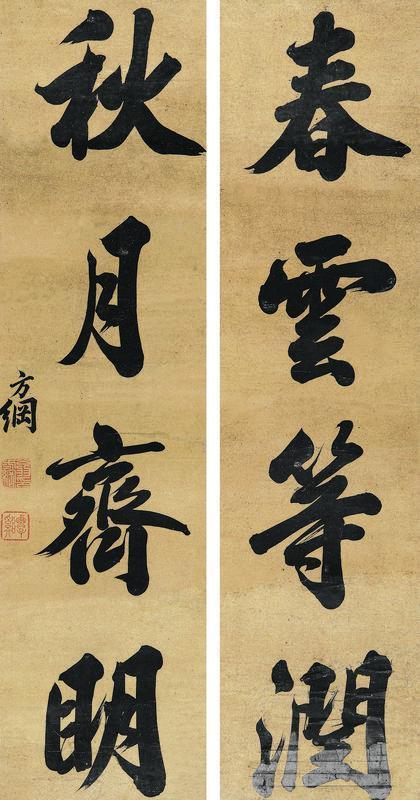 春雲等潤
秋月齊明
方綱